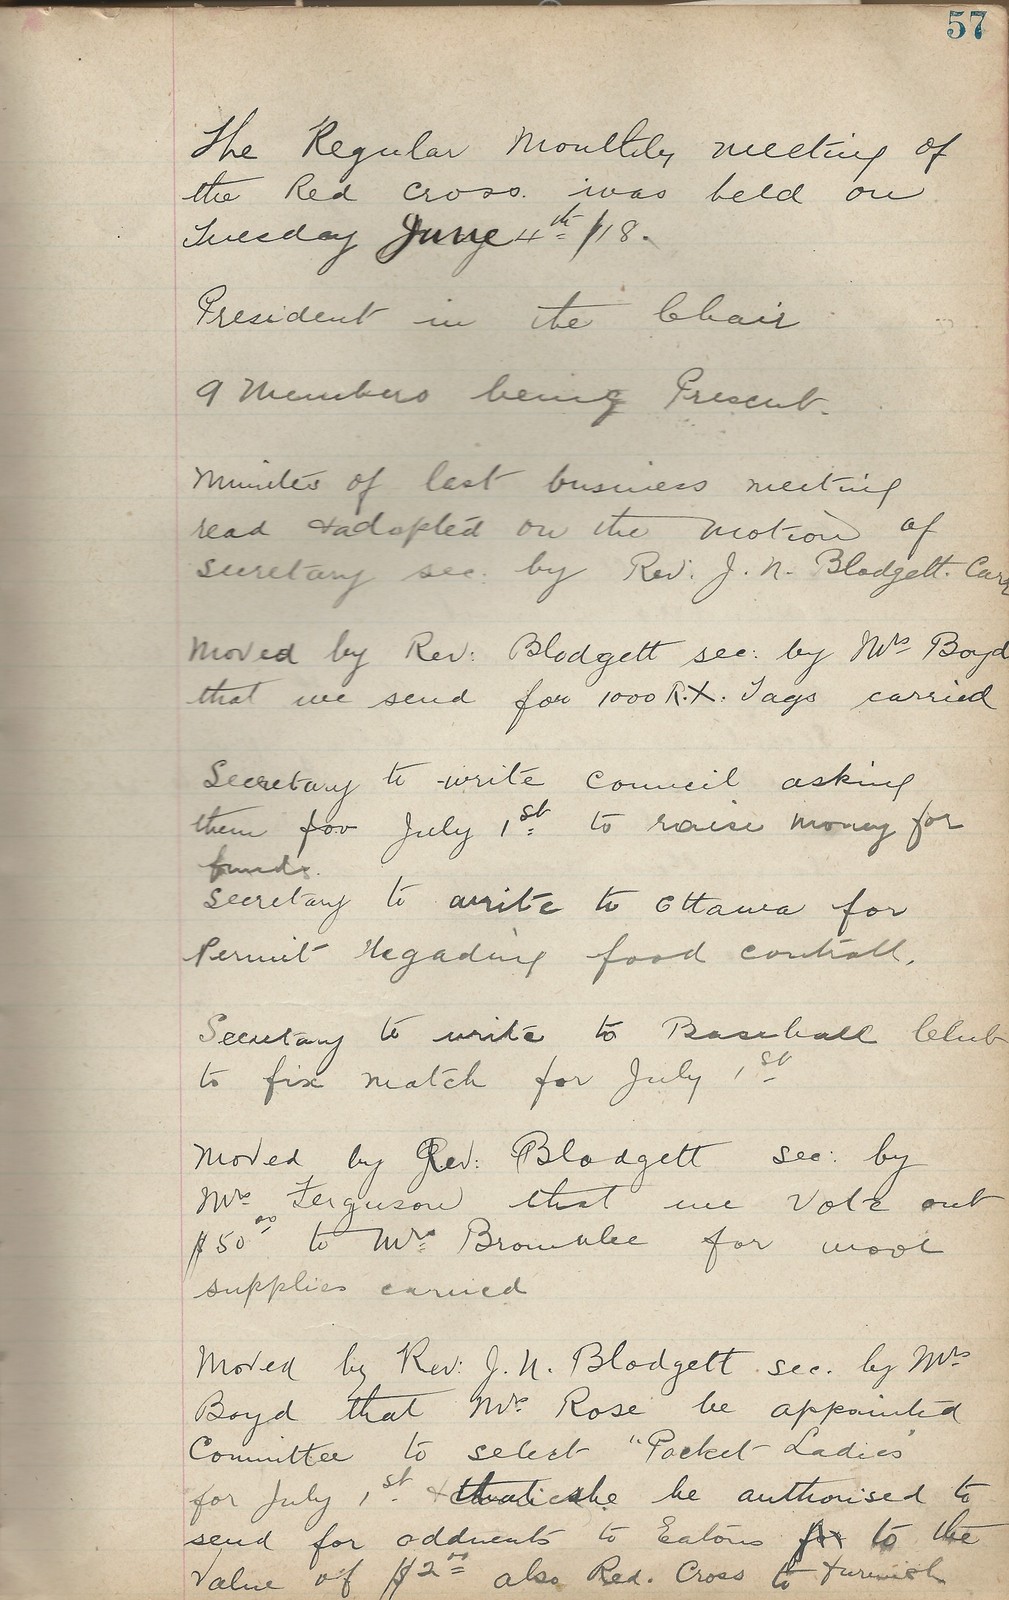 57
The Regular Monthly meeting of
the Red Cross. was held on
Tuesday June 4th /18.
President in the Chair
9 Members being Present.
Minutes of last business meeting
read & adopted on the motion of
secretary sec. by Rev. J. N. Blodgett. Car
Moved by Rev: Blodgett sec: by Mrs Boyd
that we send for 1000 R.X. Tags carried
Secretary to write council asking
them for July 1st to raise money for
funds.
Secretary to write to Ottawa for
Permit Regading food controll.
Secretary to write to Baseball Club
to fix match for July 1st
Moved by Rev: Blodgett sec: by
Mrs Ferguson that we Vote out
$50 00 to Mrs Bromlee for wool
supplies carried
Moved by Rev: J. N. Blodgett sec. by Mrs
Boyd that Mrs Rose be appointed
Committee to select "Pocket Ladies"
for July 1st & that she be authorised to
send for oddments to Eatons to the
Value of $2 00 also Red. Cross to furnish